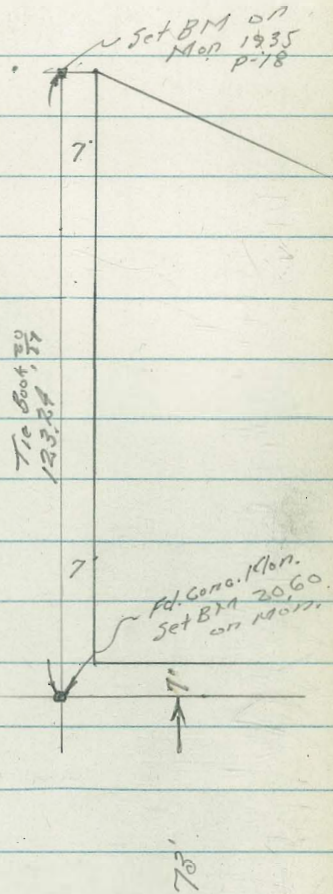 Set BM on
Mon 19.35
P-18
7'
Tie Book 20/24
123.24
7'
Fd. Conc. Mon.
Set BM 20.60
on Mon.
7'